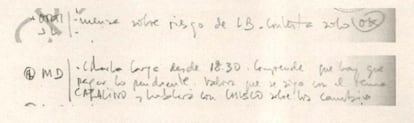 sobre riesgo de LB. Contesta solo (OK)
① MD | - Charla larga desde 18:30. Comprende que hay que
pagar lo pendiente. Valora que se siga con el tema
CATALINO y hablará con CHISCO sobre los cambios